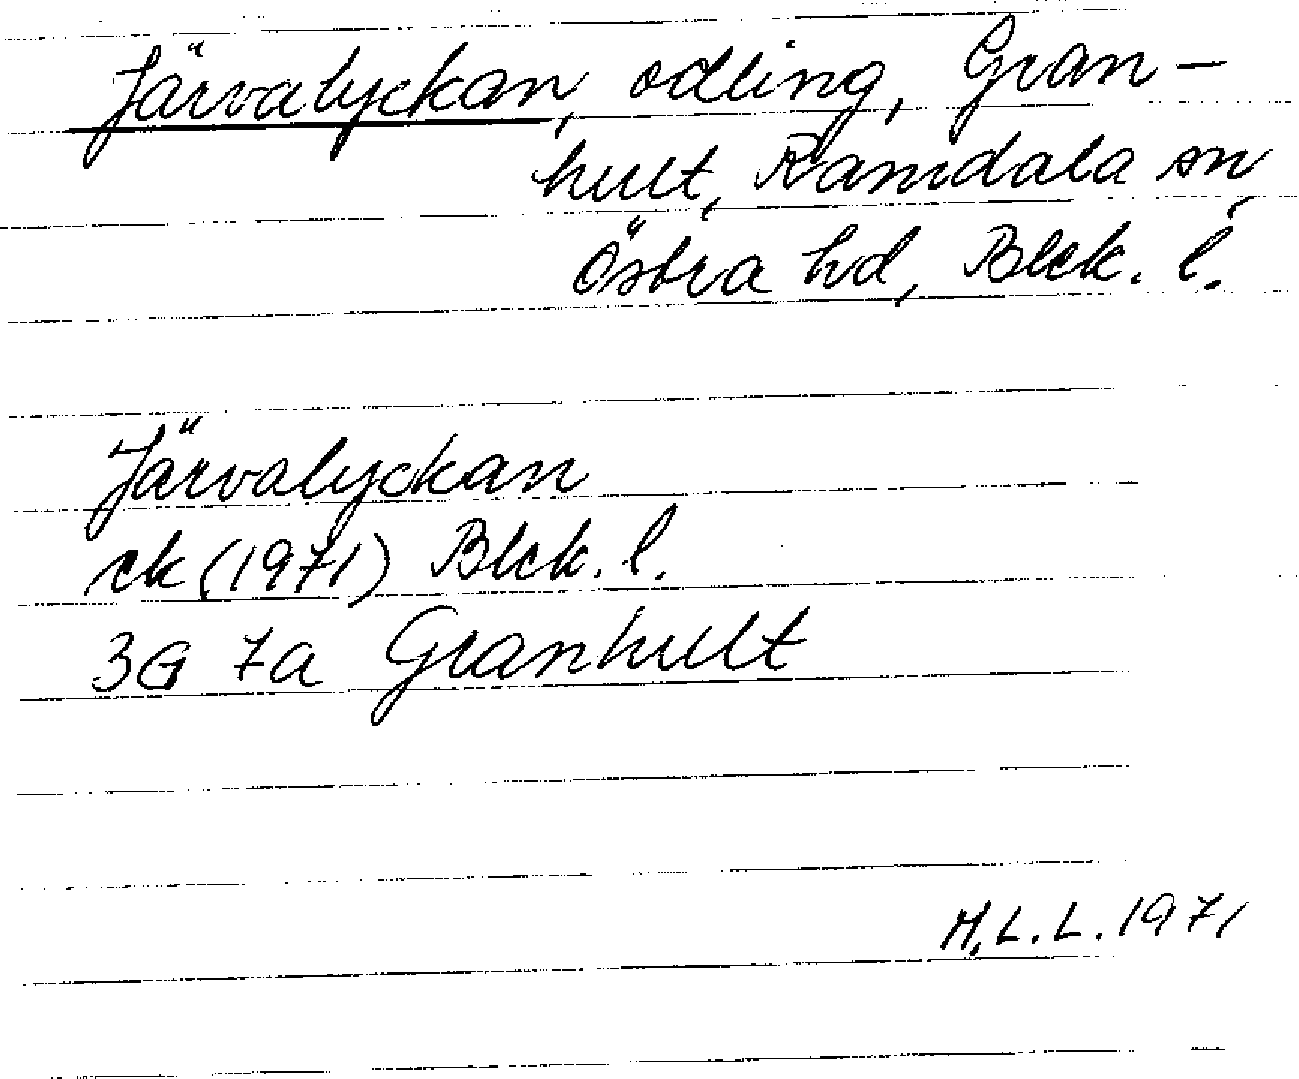 Järvalyckan, odling, Gran-
hult, Ramdala sn,
Östra hd, Blek. l.
Järvalyckan
ek (1971) Blek. l.
3G 7a Granhult
M.L.L. 1971